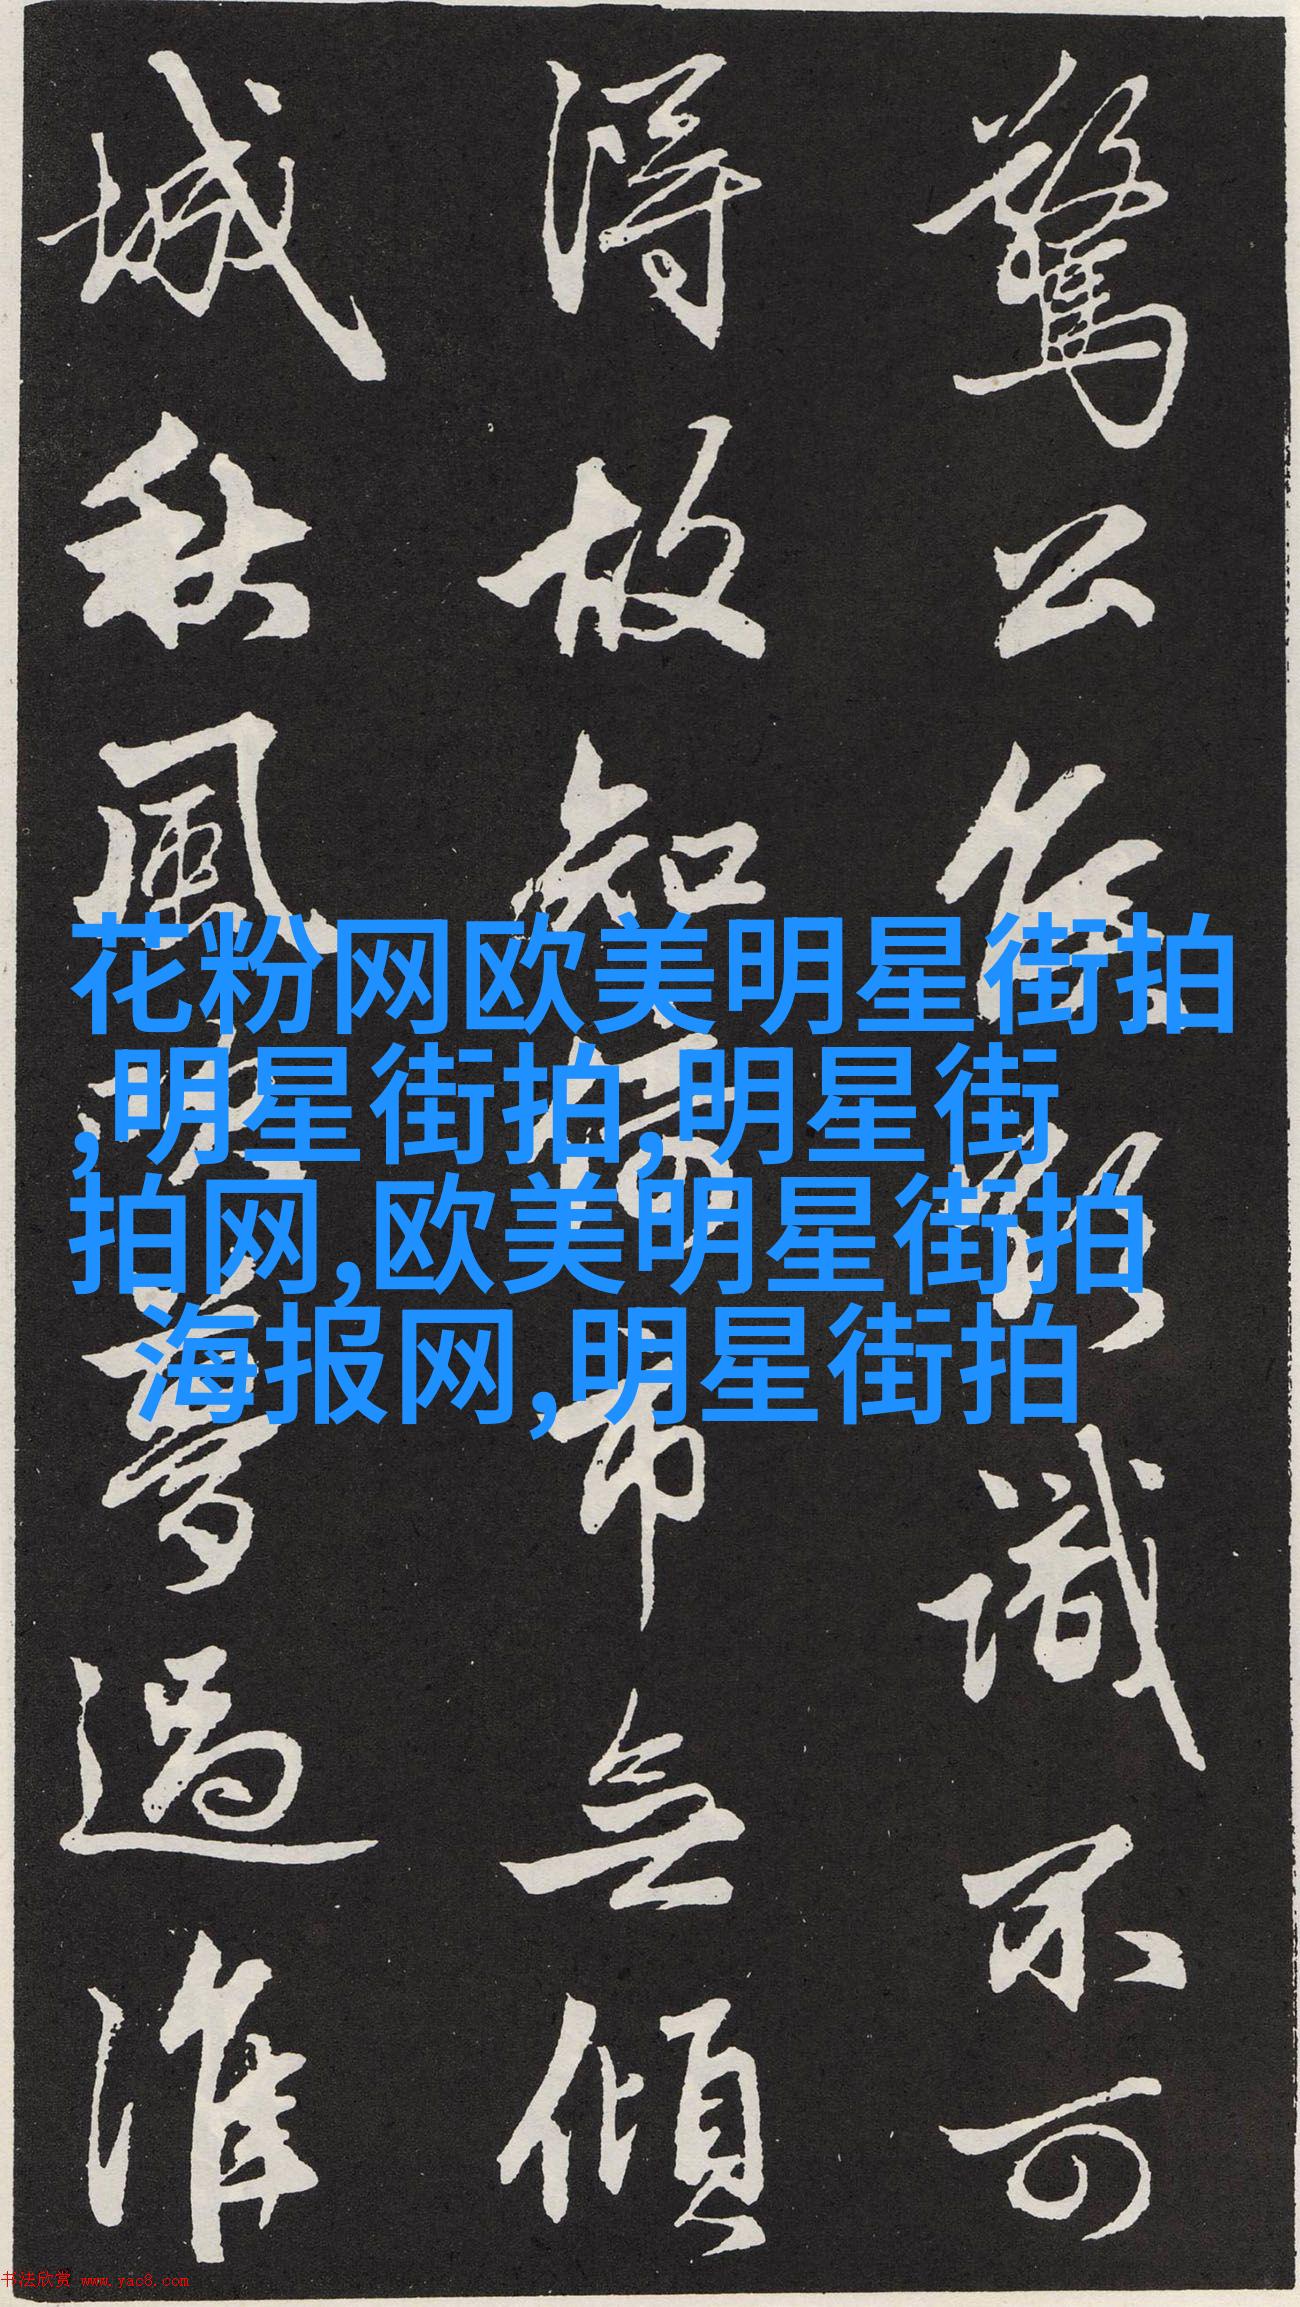 驚公識不可
得故知市無傾
城秋風吹夢過淮
花粉网欧美明星街拍
,明星街拍,明星街
拍网,欧美明星街拍
海报网,明星街拍
书法欣赏 www.yac8.com